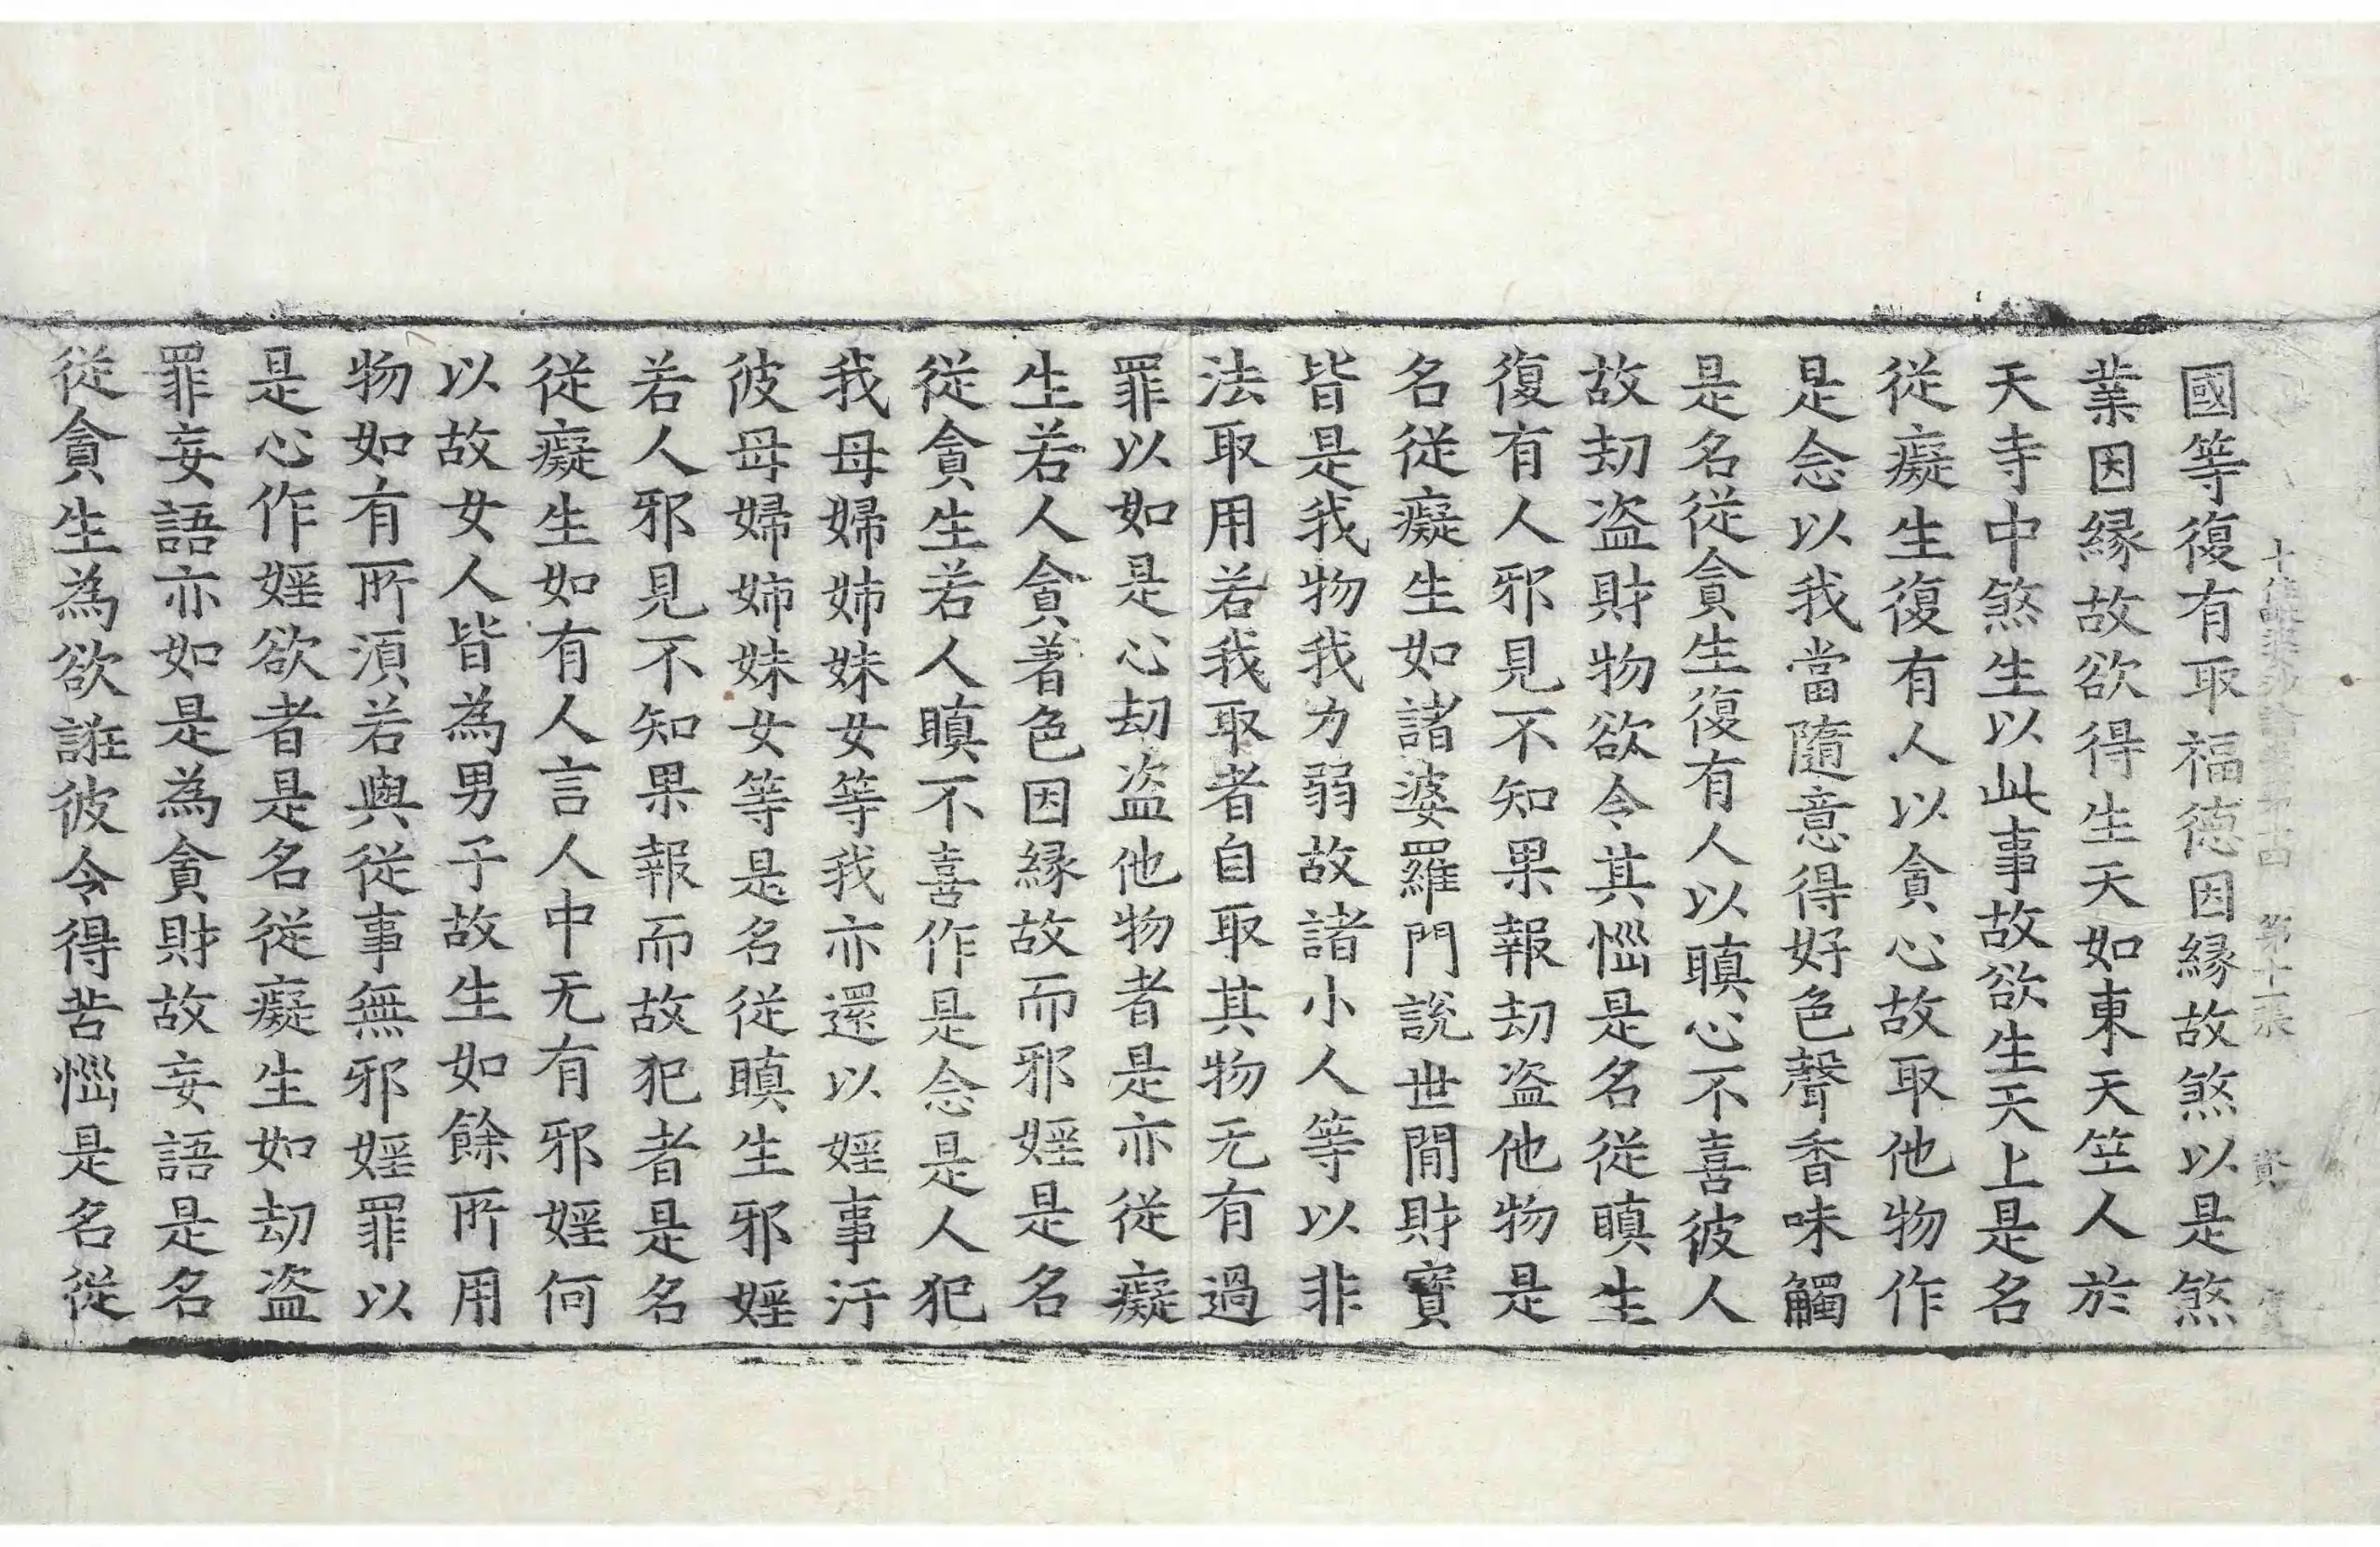 十住毗婆沙論卷第十四 第十一張 資
國等復有取福德因縁故煞以是煞
業因縁故欲得生天如東天竺人於
天寺中煞生以此事故欲生天上是名
從癡生復有人以貪心故取他物作
是念以我當隨意得好色聲香味觸
是名從貪生復有人以瞋心不喜彼人
故劫盗財物欲令其惱是名從瞋生
復有人邪見不知果報劫盗他物是
名從癡生如諸婆羅門說世間財寳
皆是我物我力弱故諸小人等以非
法取用若我取者自取其物无有過
罪以如是心劫盗他物者是亦從癡
生若人貪著色因縁故而邪婬是名
從貪生若人瞋不喜作是念是人犯
我母婦姊妹女等我亦還以婬事汙
彼母婦姊妹女等是名從瞋生邪婬
若人邪見不知果報而故犯者是名
從癡生如有人言人中无有邪婬何
以故女人皆為男子故生如餘所用
物如有所湏若與從事無邪婬罪以
是心作婬欲者是名從癡生如劫盗
罪妄語亦如是為貪財故妄語是名
從貪生為欲誑彼令得苦惱是名從